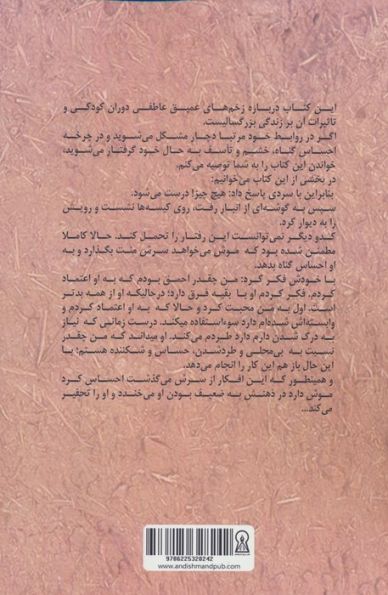 این کتاب درباره زخم‌های عمیق عاطفی دوران کودکی و
تاثیرات آن بر زندگی بزرگسالیست.
اگر در روابط خود مرتبا دچار مشکل می‌شوید و در چرخه
احساس گناه، خشم و تأسف به حال خود گرفتار می‌شوید،
خواندن این کتاب را به شما توصیه می‌کنم.
در بخشی از این کتاب می‌خوانیم:
بنابراین با سردی پاسخ داد: هیچ چیز! درست می‌شود.
سپس به گوشه‌ای از انبار رفت، روی کیسه‌ها نشست و رویش
را به دیوار کرد.
کدو دیگر نمی‌توانست این رفتار را تحمل کند. حالا کاملا
مطمئن شده بود که موش می‌خواهد سرش منت بگذارد و به
او احساس گناه بدهد.
با خودش فکر کرد: من چقدر احمق بودم که به او اعتماد
کردم. فکر کردم او با بقیه فرق دارد؛ درحالیکه او از همه بدتر
است. اول به من محبت کرد و حالا که به او اعتماد کردم و
وابسته‌اش شده‌ام دارد سوءاستفاده میکند. درست زمانی که نیاز
به درک شدن دارم دارد طردم می‌کند. او میداند که من چقدر
نسبت به بی‌محلی و طردشدن، حساس و شکننده هستم؛ با
این حال باز هم این کار را انجام می‌دهد.
و همینطور که این افکار از سرش می‌گذشت احساس کرد
موش دارد در ذهنش به ضعیف بودن او می‌خندد و او را تحقیر
می‌کند...
9786225320242
www.andishmandpub.com